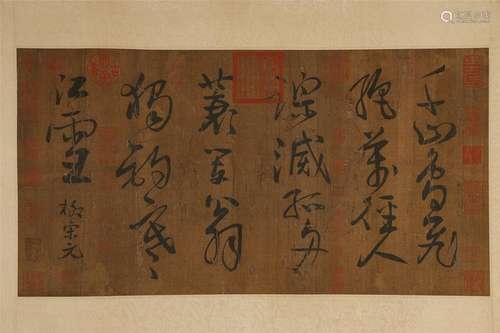 千山鳥飛
絕萬徑人
蹤滅孤舟
蓑笠翁
獨釣寒
江雪
柳宗元